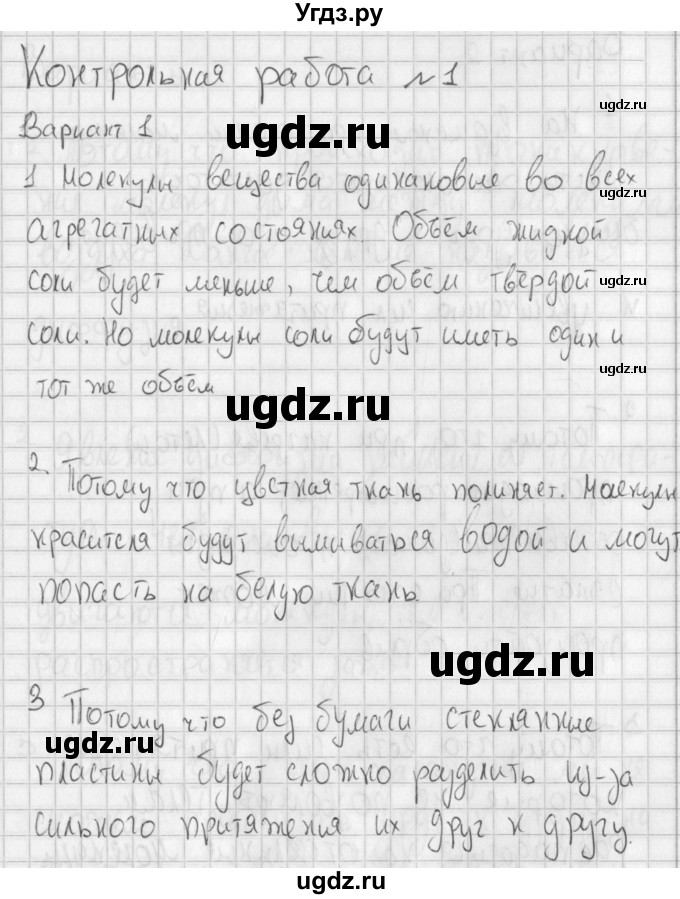 Угдз.ру
Контрольная работа №1
ugdz.ru
Вариант 1
ugdz.ru
1 Молекулы вещества одинаковые во всех
ugdz.ru
агрегатных состояниях. Объём жидкой
соли будет меньше, чем объём твёрдой
ugdz.ru
соли. Но молекулы соли будут иметь один и
тот же объём
ugdz.ru
ugdz.ru
2. Потому что цветная ткань полиняет. Молекулы
красителя будут вымиваться водой и могут
попасть на белую ткань.
ugdz.ru
3 Потому что без бумаги стеклянные
ugdz.ru
пластины будет сложно разделить из-за
сильного притяжения их друг к другу.
ugdz.ru